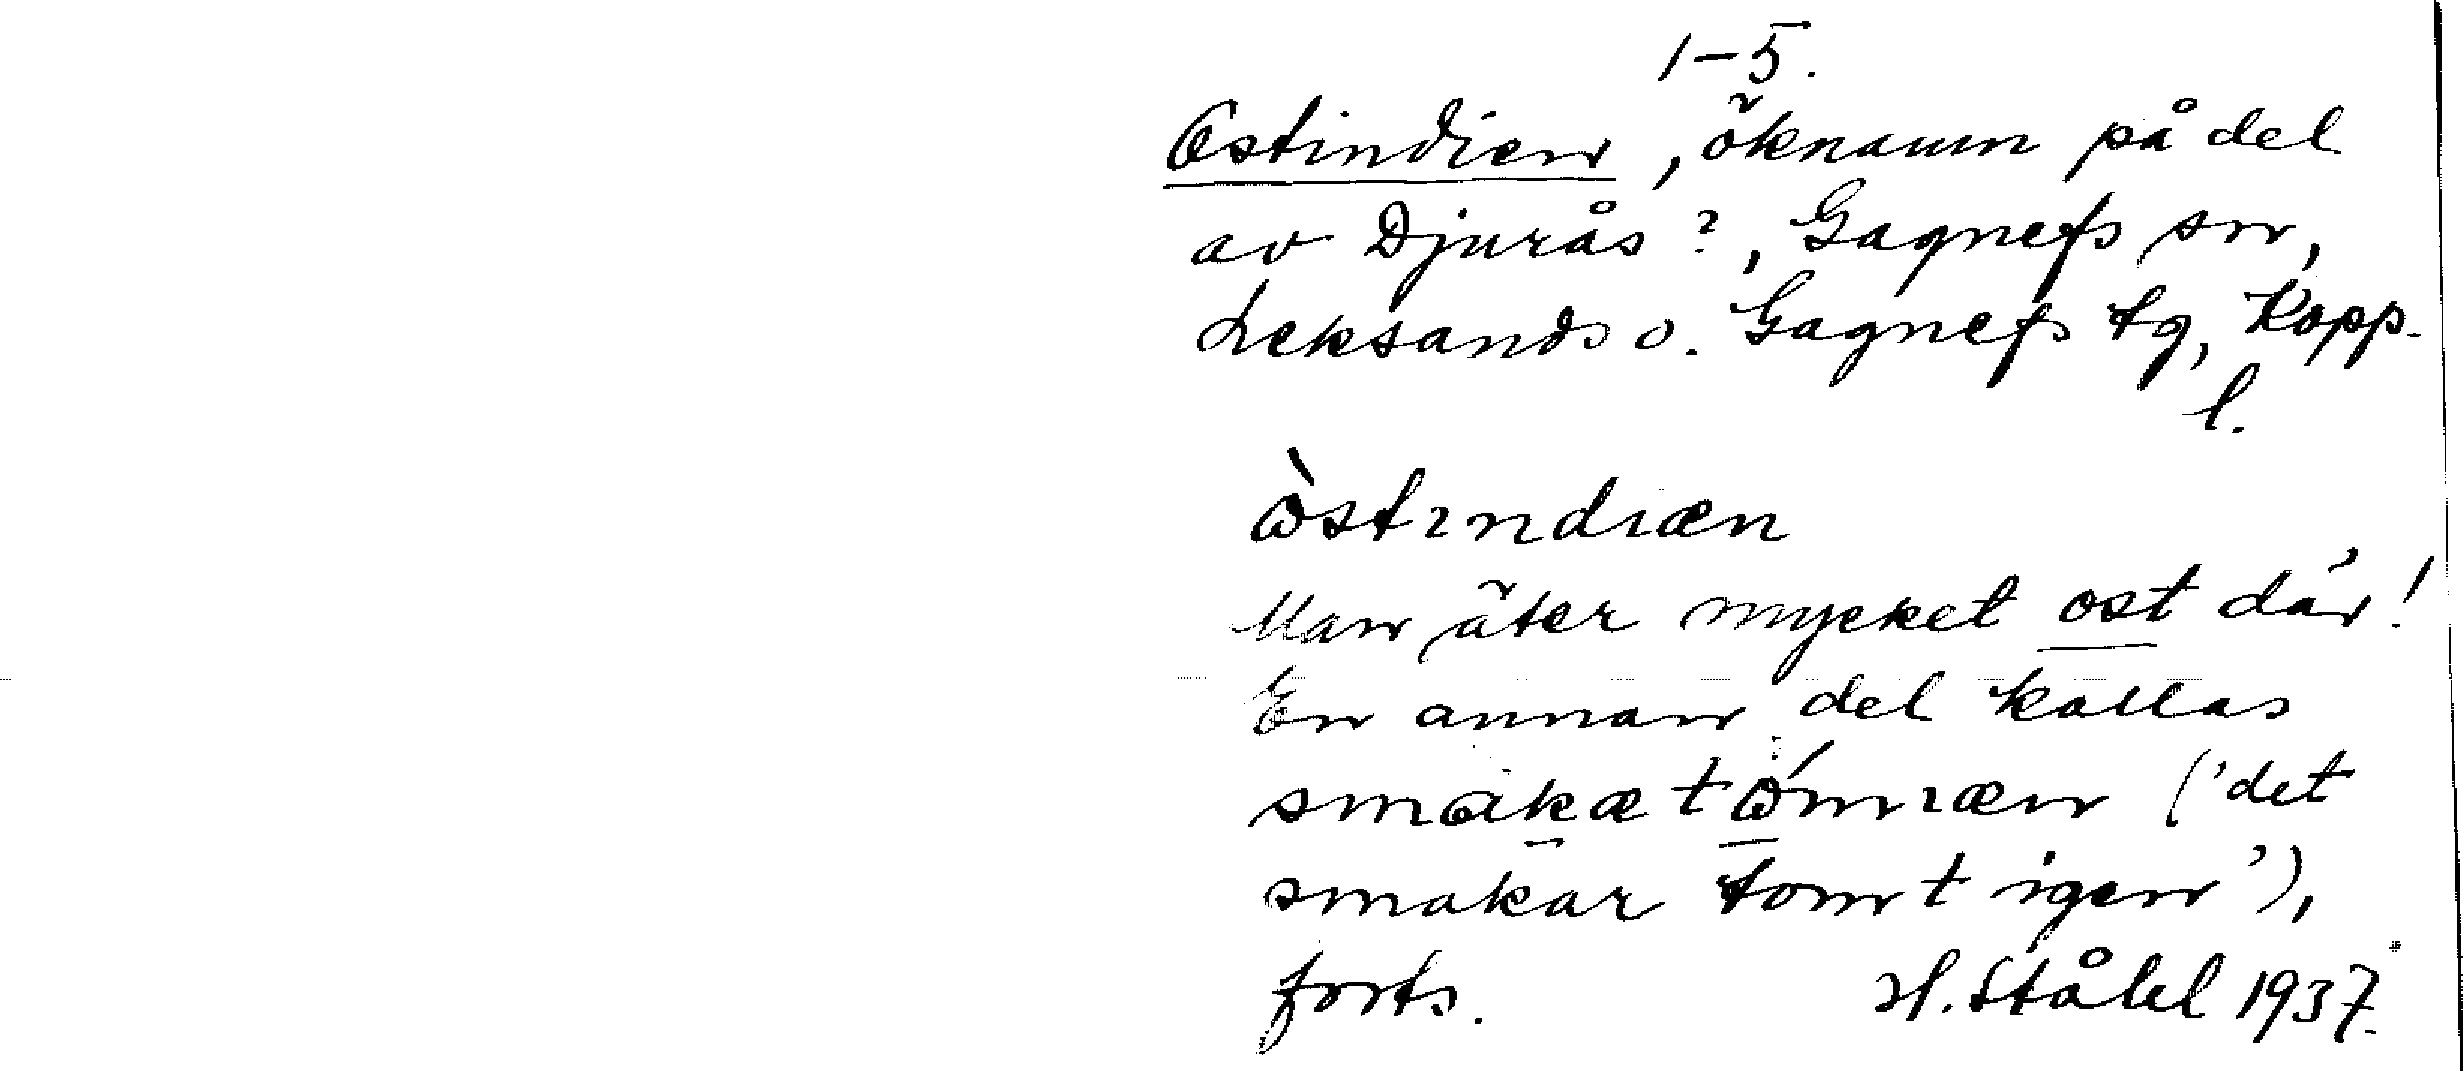 1–5.
Ostindien, öknamn på del
av Djurås?, Gagnefs sn,
Leksands o. Gagnefs tg, Kopp.
l.
ὼstɩndɩæn
Man äter mycket ost där!
En annan del kallas
smakæ tώmɩæn ('det
smakar tomt igen'),
forts. H. Ståhl 1937.